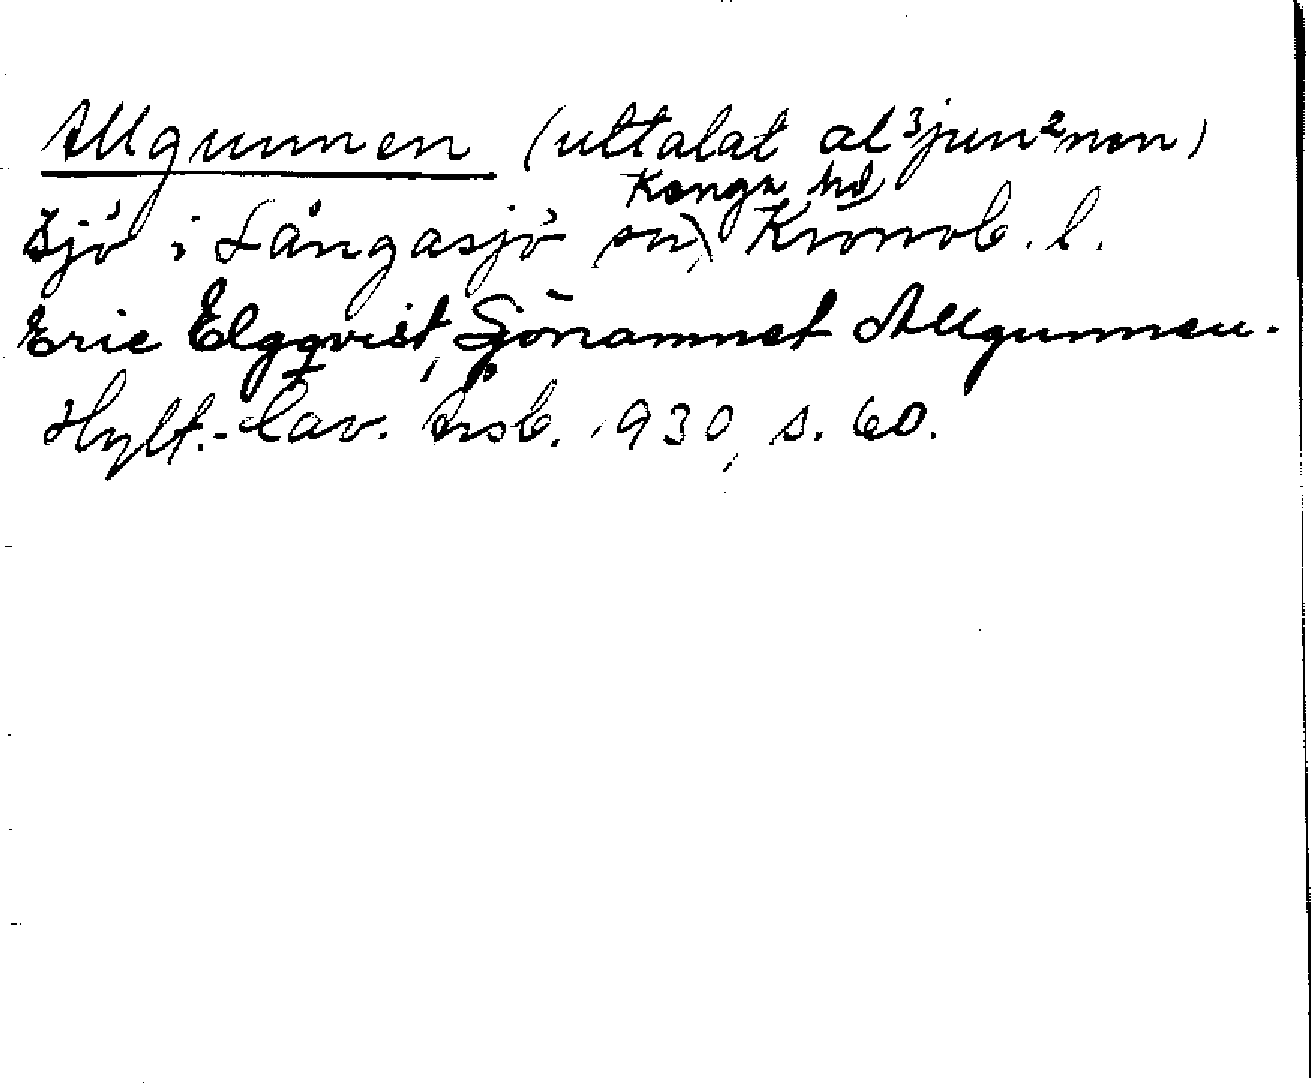 Allgunnen (uttalat al³jun²nen)
Sjö i Långasjö sn, Konga hd Kronob. l.
Eric Elgqvist, Sjönamnet Allgunnen.
Hylt.-Cav. årsb. 1930, s. 60.